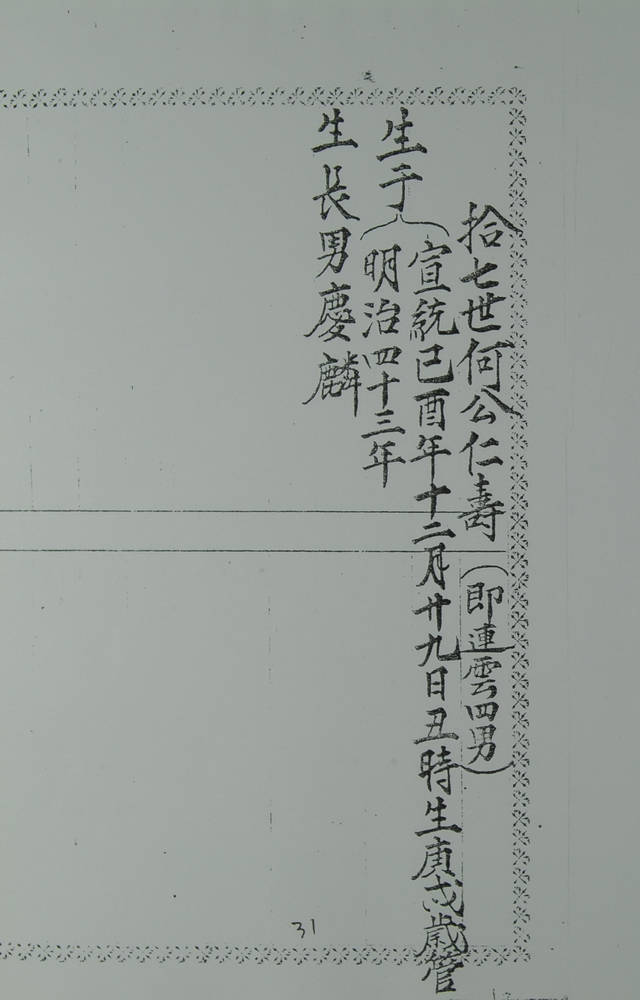 拾七世何公仁壽（即連雲四男）
生于
宣統己酉年十二月廿九日丑時生庚戌歲管
明治四十三年
生長男慶麟
31